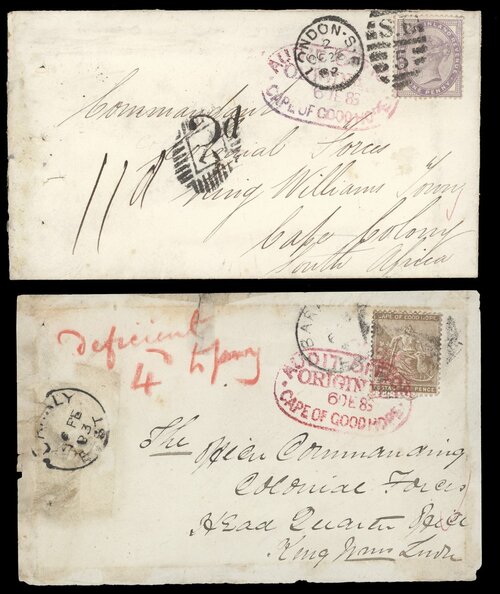 LONDON·S.E
2
82
S.E
5
ONE PENNY
AUDIT
ORIGINAL
6 DE 83
CAPE OF GOOD HO
Commandant
2d
Colonial Forces
11d
King Williams Town
Cape Colony
South Africa
deficient
4d to pay
BAR
CAPE OF GOOD HOPE
PENCE
AUDIT OFFICE
ORIGINAL
6 DE 83
CAPE OF GOOD HOPE
FE
83
The
Officer Commanding
Colonial Forces
Head Quarter Office
King Wms Town